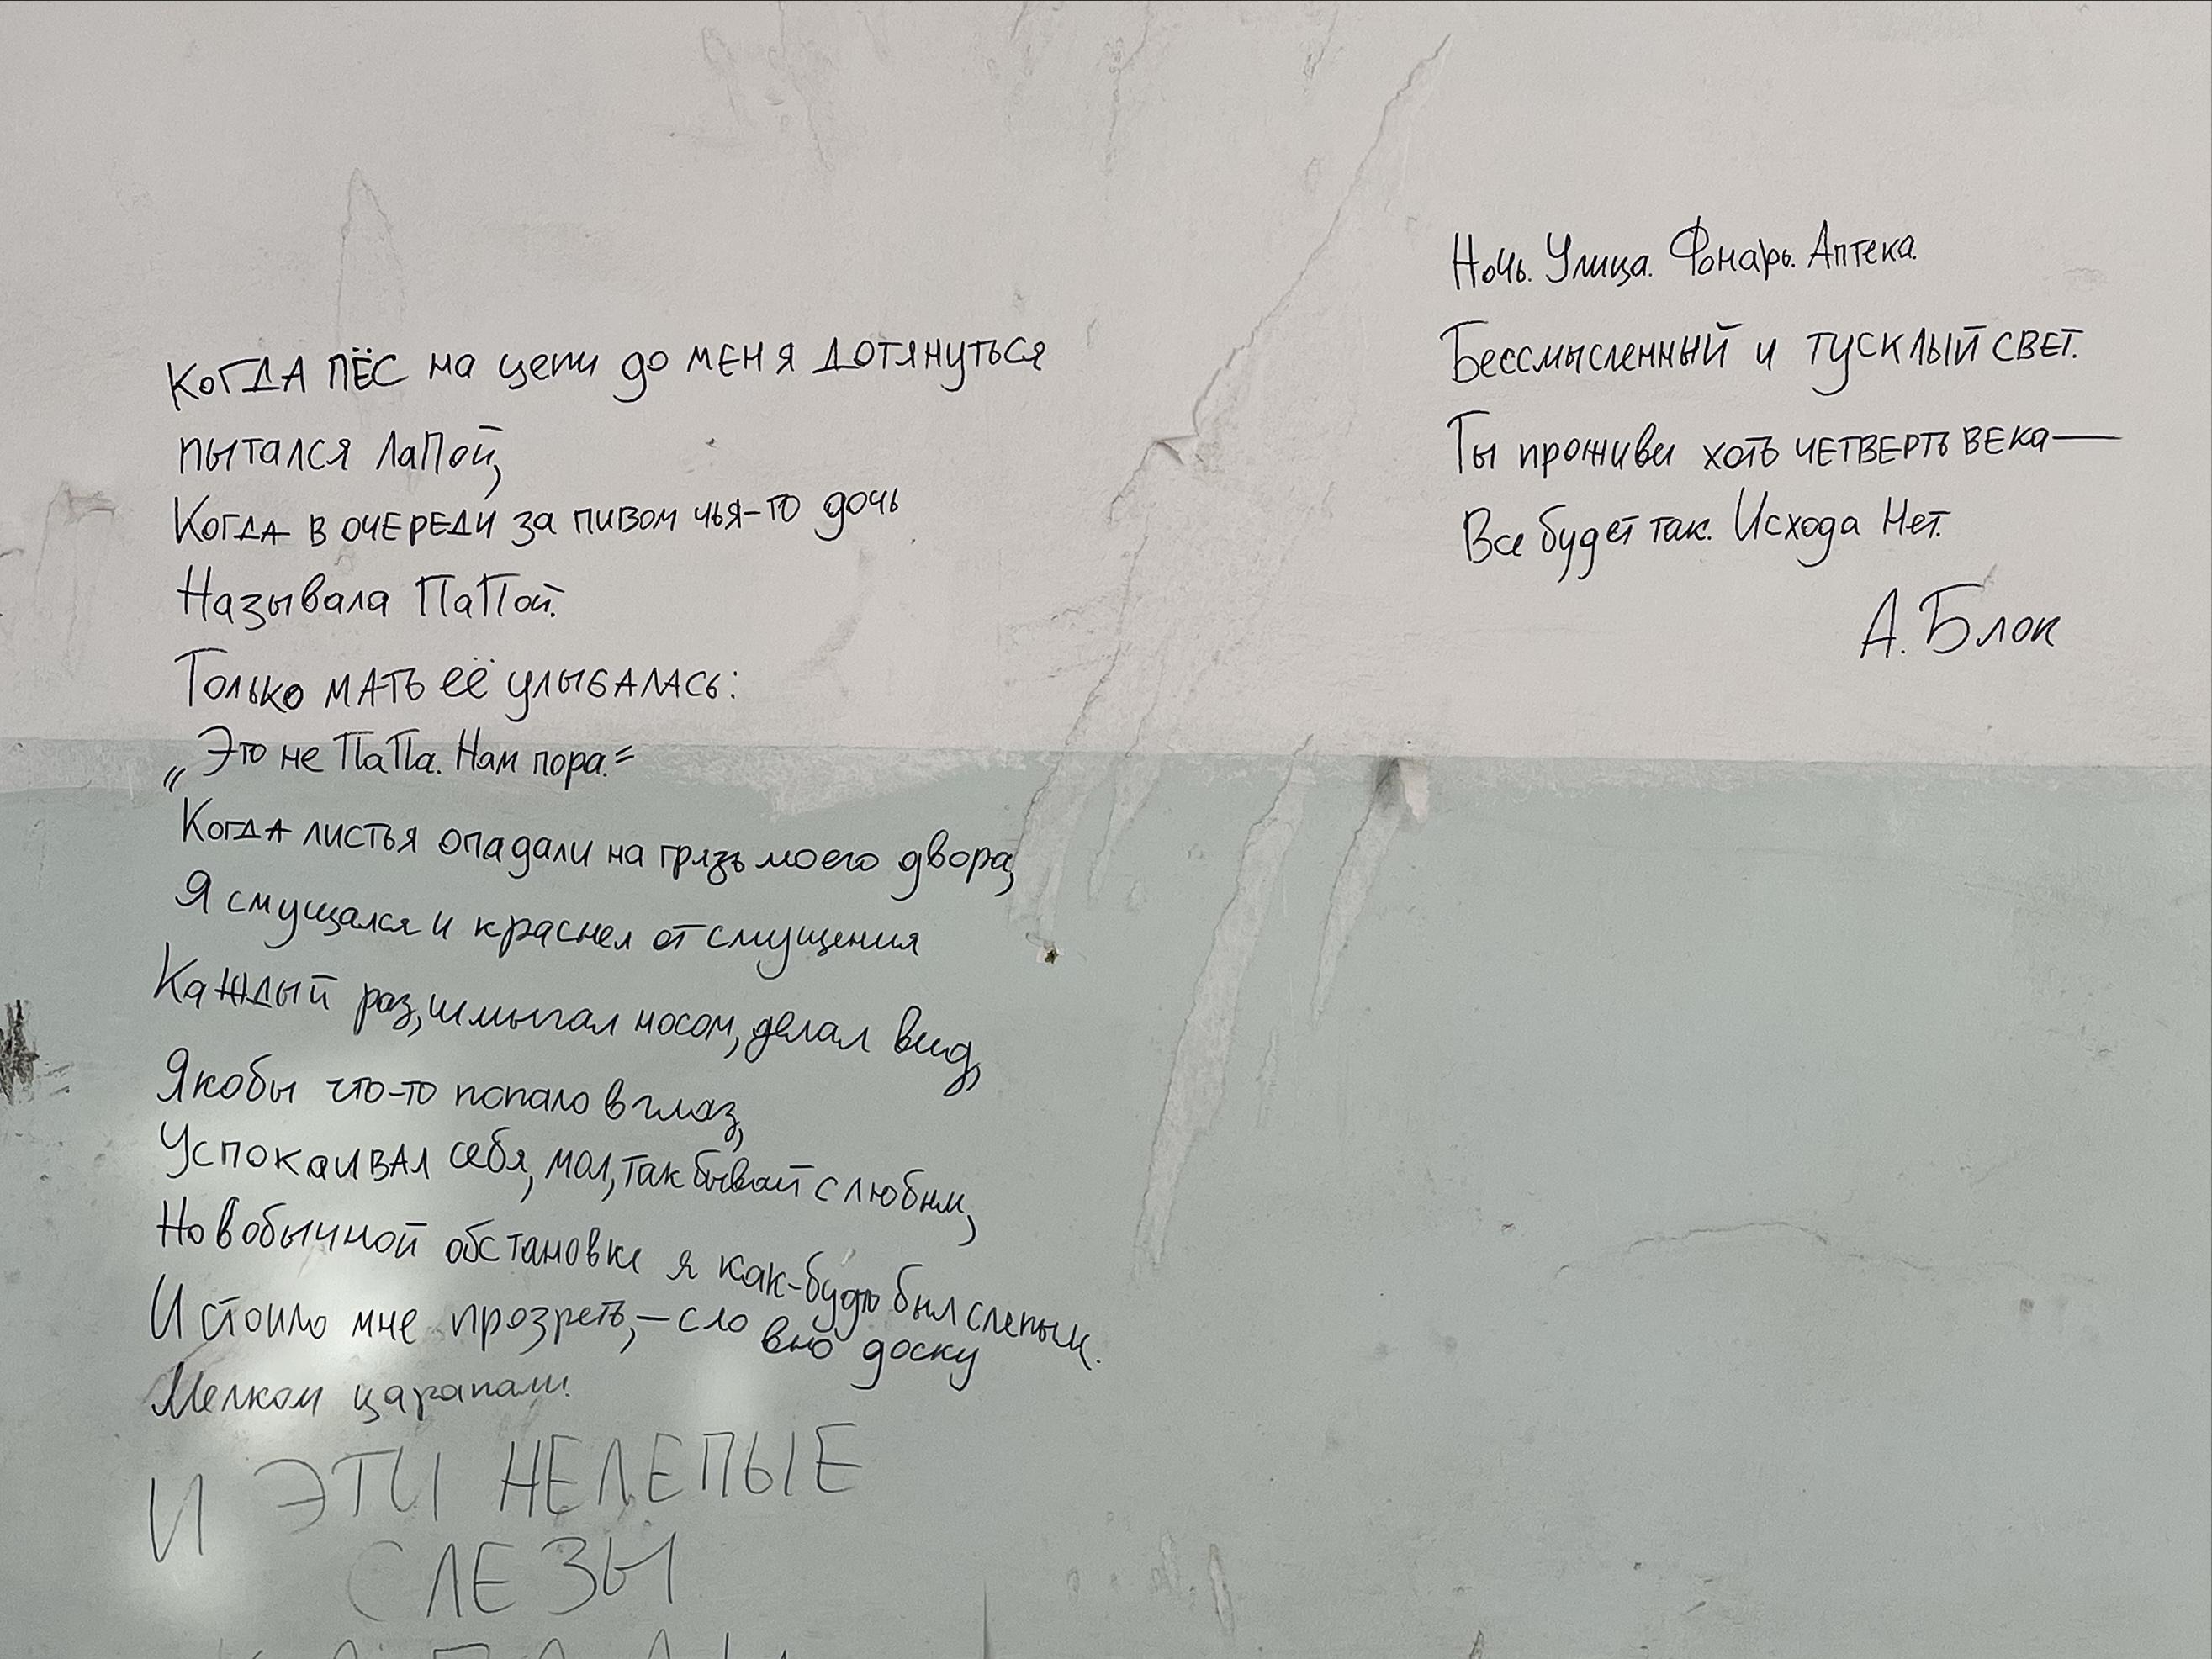 Когда пёс на цепи до меня дотянуться
пытался лапой,
Когда в очереди за пивом чья-то дочь
Называла Папой.
Только мать её улыбалась:
„Это не Папа. Нам пора."
Когда листья опадали на грязь моего двора,
Я смущался и краснел от смущения
Каждый раз, шмыгал носом, делал вид,
Якобы что-то попало в глаз,
Успокаивал себя, мол, так бывает с любым,
Но в обычной обстановке я как-будто был слепым.
И стоило мне прозреть, — словно доску
Мелком царапали.
И ЭТИ НЕЛЕПЫЕ
СЛЕЗЫ
Ночь. Улица. Фонарь. Аптека.
Бессмысленный и тусклый свет.
Ты проживи хоть четверть века —
Все будет так. Исхода Нет.
А. Блок